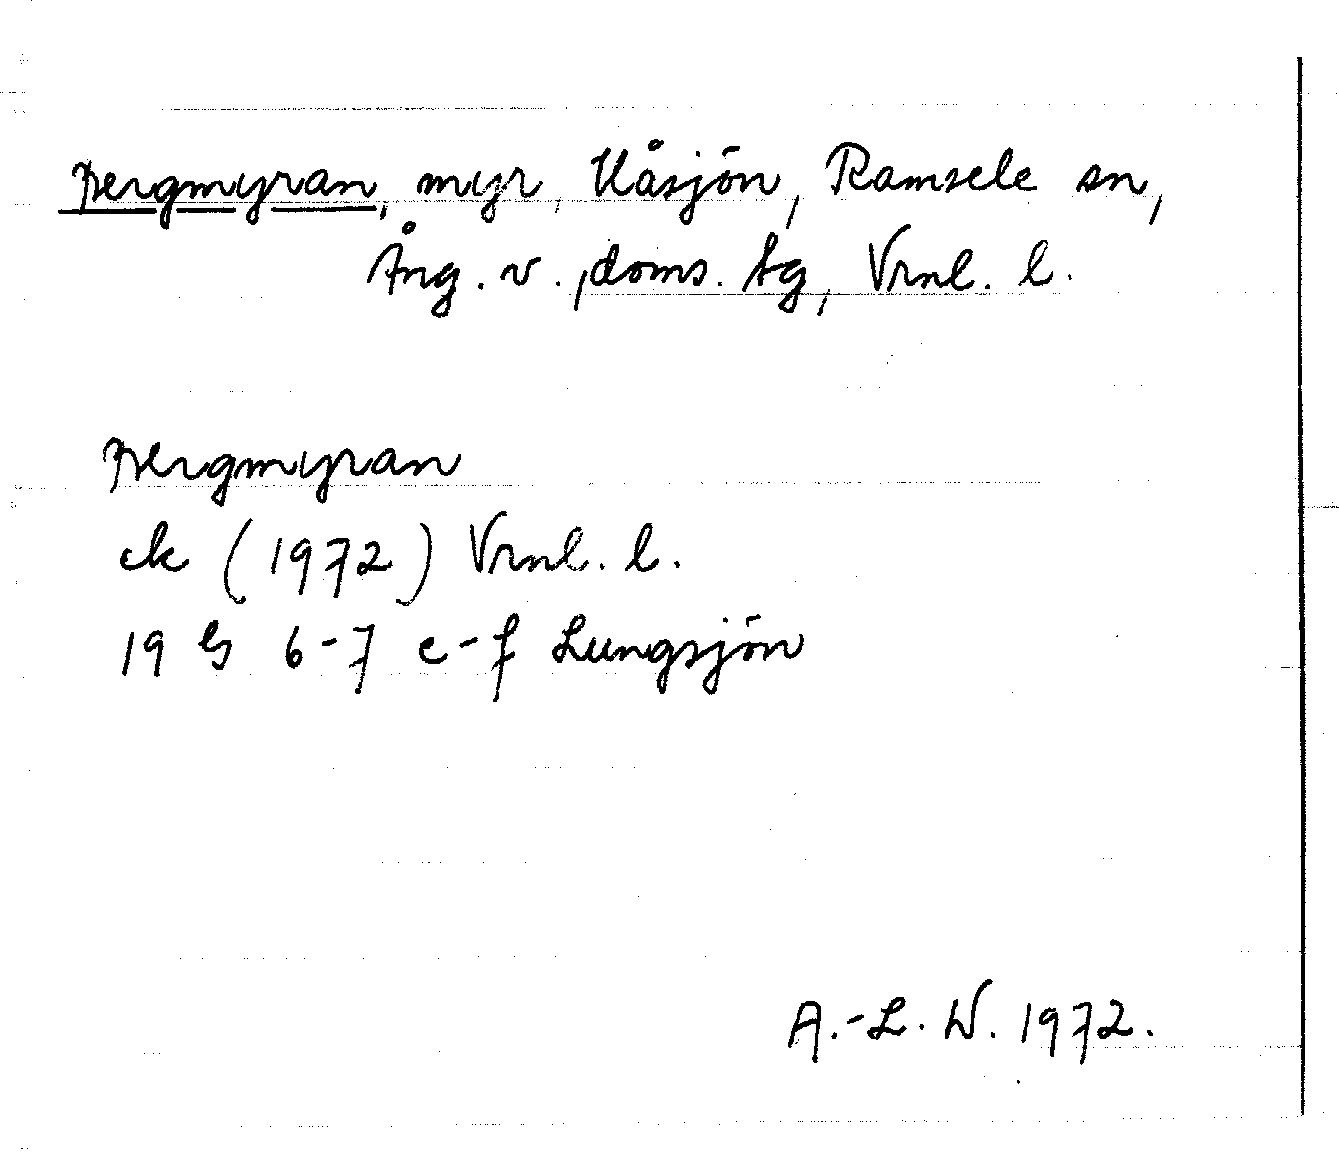 Bergmyran, myr, Kåsjön, Ramsele sn,
Ång. v. doms. tg, Vrnl. l.
Bergmyran
ek (1972) Vrnl. l.
19 G 6-7 e-f Lungsjön
A.-L. W. 1972.